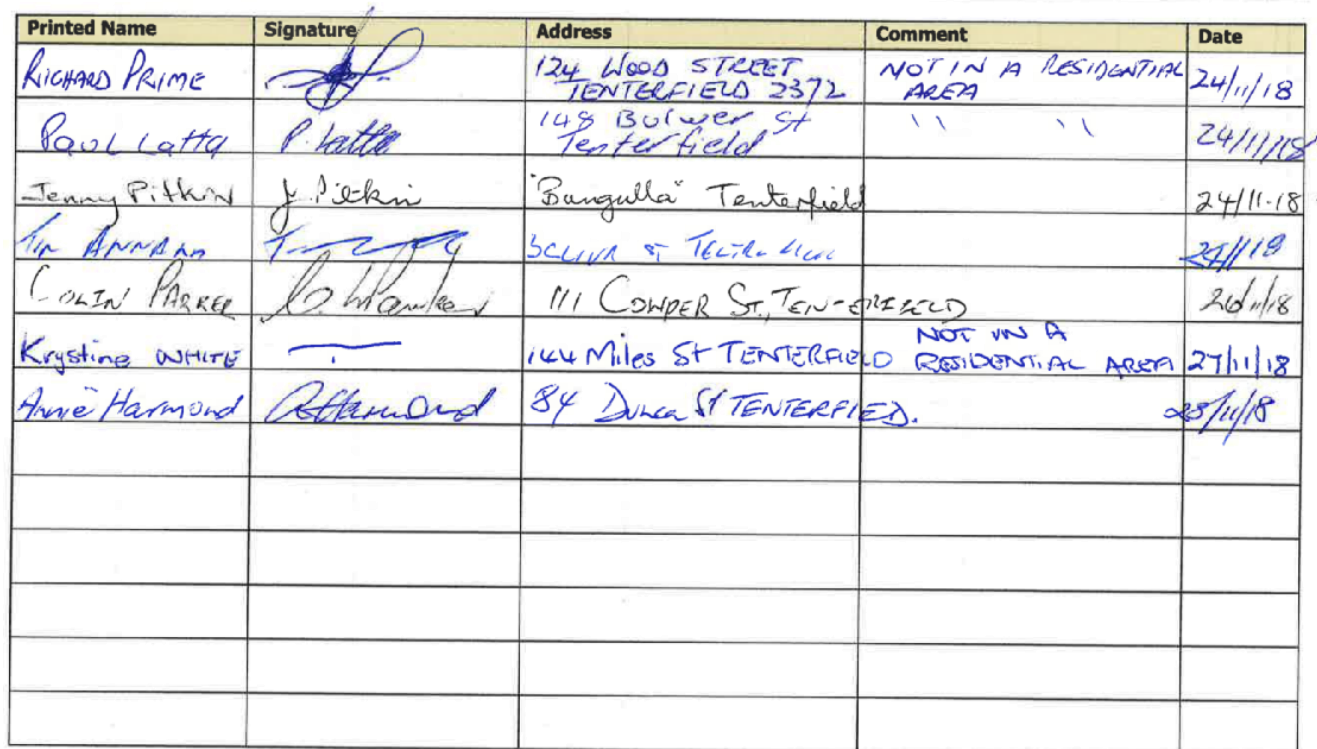 Printed Name Signature Address Comment Date
RICHARD PRIME 124 WOOD STREET TENTERFIELD 2372 NOT IN A RESIDENTIAL AREA 24/11/18
Paul Latta P. Latta 148 Bulwer St Tenterfield " " 24/11/18
Jenny Pitkin J. Pitkin "Bungulla" Tenterfield 24/11-18
ANNAND
COLIN PARKER 111 COWPER ST, TEN-ERFIELD
Krystine WHITE 144 Miles St TENTERFIELD NOT IN A RESIDENTIAL AREA 27/11/18
Annie Harmond 84 St TENTERFIED. 28/11/18